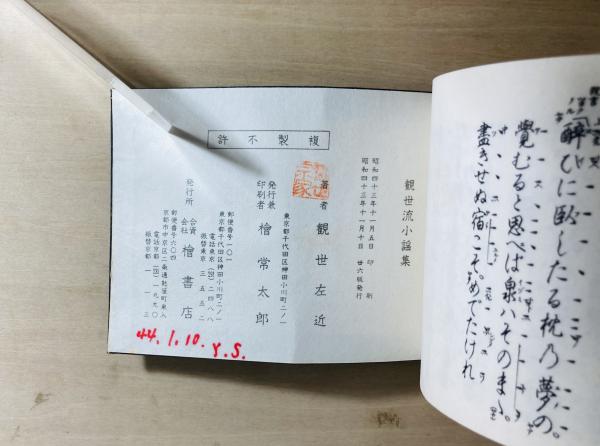 酔ひに臥したる枕乃夢の。
覺むると思へば泉ハそのまゝ。
盡きせぬ宿こそめでたけれ
観世流小謡集
昭和四十三年十一月五日印刷
昭和四十三年十一月十日廿六版発行
著者 観世左近
東京都千代田区神田小川町二ノ一
発行兼印刷者 檜常太郎
郵便番号一〇一
東京都千代田区神田小川町二ノ一
電話東京(291)二四八八
振替東京三五五二
発行所 合資会社 檜書店
郵便番号六〇四
京都市中京区二条通麩屋町東入
電話京都(231)一九九〇
振替京都一一三
複製不許
44.1.10. Y.S.